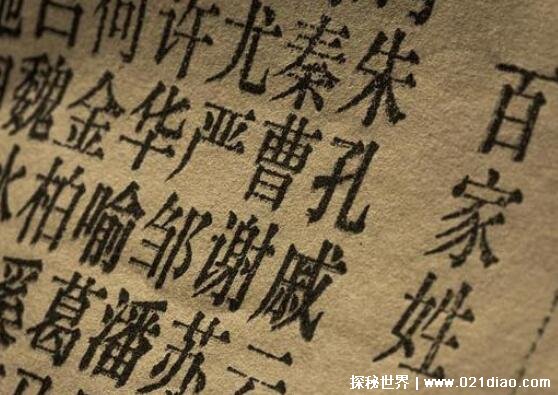 百家姓
朱秦尤许何吕施
孔曹严华金魏
戚谢邹喻柏水
云苏潘葛奚
探秘世界 | www.021diao.com